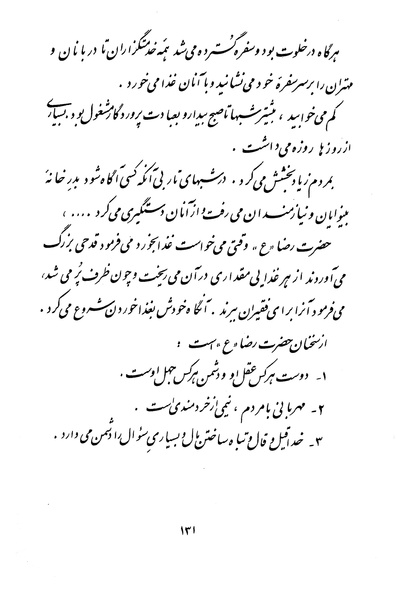 هرگاه در خلوت بود و سفره گسترده می‌شد همه خدمتگزاران تا دربانان و
مهتران را بر سر سفرهٔ خود می‌نشانید و با آنان غذا می‌خورد .
کم می‌خوابید ، بیشتر شبها تا صبح بیدار و بعبادت پروردگار مشغول بود . بسیاری
از روزها روزه می‌داشت .
بمردم زیاد بخشش می‌کرد . در شبهای تار بی آنکه کسی آگاه شود بدر خانهٔ
بینوایان و نیازمندان می‌رفت و از آنان دستگیری می‌کرد .... ،
حضرت رضا « ع » وقتی می‌خواست غذا بخورد می‌فرمود قدحی بزرگ
می‌آوردند از هر غذایی مقداری در آن می‌ریخت و چون ظرف پُر می‌شد ،
می‌فرمود آنرا برای فقیران ببرند . آنگاه خودش بغذا خوردن شروع می‌کرد .
از سخنان حضرت رضا « ع » است :
۱- دوست هر کس عقل او و دشمن هر کس جهل اوست .
۲- مهربانی با مردم ، نیمی از خردمندی است .
۳- خدا قیل و قال و تباه ساختن مال و بسیاریِ سئوال را دشمن می‌دارد .
۱۳۱